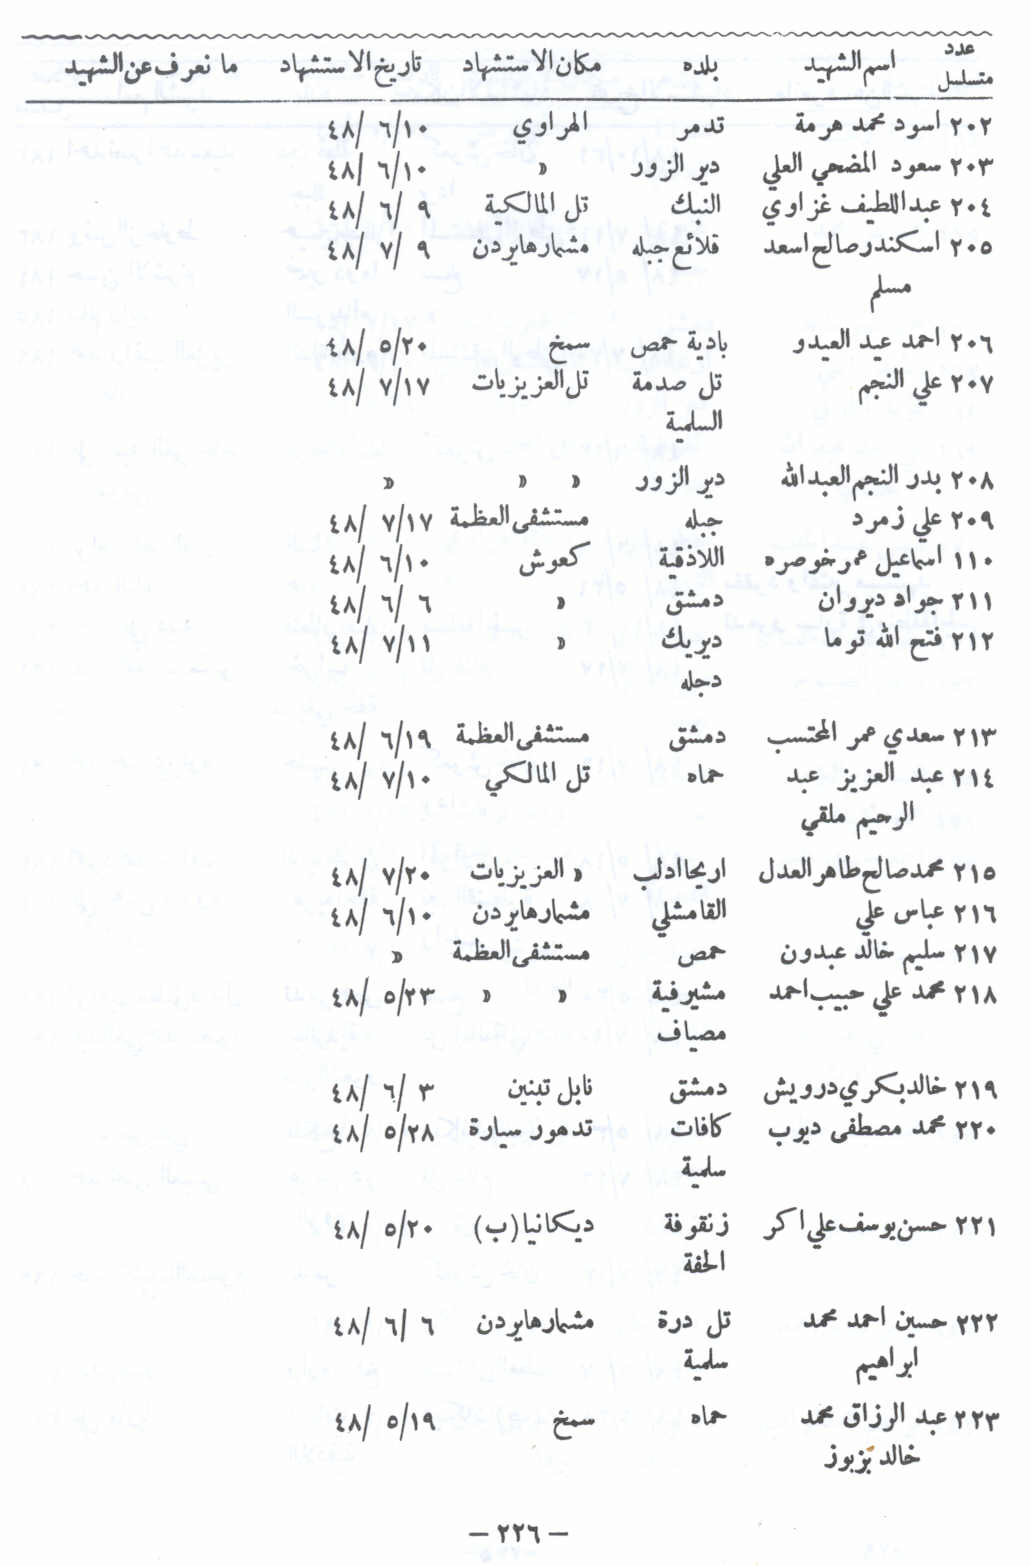 عدد متسلسل اسم الشهيد بلده مكان الاستشهاد تاريخ الاستشهاد ما نعرف عن الشهيد
٢٠٢ اسود محمد هرمة تدمر الهراوي ٤٨/ ٦/١٠
٢٠٣ سعود المضحي العلي دير الزور » ٤٨/ ٦/١٠
٢٠٤ عبداللطيف غزاوي النبك تل المالكية ٤٨/ ٦/ ٩
٢٠٥ اسكندر صالح اسعد فلائع جبله مشمارهايردن ٤٨/ ٧/ ٩
مسلم
٢٠٦ احمد عيد العيدو بادية حمص سمخ ٤٨/ ٥/٢٠
٢٠٧ علي النجم تل صدمة تل العزيزيات ٤٨/ ٧/١٧
السلمية
٢٠٨ بدر النجم العبدالله دير الزور » » »
٢٠٩ علي زمرد جبله مستشفى العظمة ٤٨/ ٧/١٧
١١٠ اسماعيل عمر خوصره اللاذقية كعوش ٤٨/ ٦/١٠
٢١١ جواد ديروان دمشق » ٤٨/ ٦/ ٦
٢١٢ فتح الله توما ديريك » ٤٨/ ٧/١١
دجله
٢١٣ سعدي عمر المحتسب دمشق مستشفى العظمة ٤٨/ ٦/١٩
٢١٤ عبد العزيز عبد حماه تل المالكي ٤٨/ ٧/١٠
الرحيم ملقي
٢١٥ محمد صالح طاهر العدل اريحا ادلب » العزيزيات ٤٨/ ٧/٢٠
٢١٦ عباس علي القامشلي مشمارهايردن ٤٨/ ٦/١٠
٢١٧ سليم خالد عبدون حمص مستشفى العظمة »
٢١٨ محمد علي حبيب احمد مشيرفية » » ٤٨/ ٥/٢٣
مصياف
٢١٩ خالد بكري درويش دمشق نابل تبنين ٤٨/ ٦/ ٣
٢٢٠ محمد مصطفى ديوب كافات تدهور سيارة ٤٨/ ٥/٢٨
سلمية
٢٢١ حسن يوسف علي اكر زنقوفة ديكانيا (ب) ٤٨/ ٥/٢٠
الحفة
٢٢٢ حسين احمد محمد تل درة مشمارهايردن ٤٨/ ٦/ ٦
ابراهيم سلمية
٢٢٣ عبد الرزاق محمد حماه سمخ ٤٨/ ٥/١٩
خالد بزبوز
— ٢٢٦ —